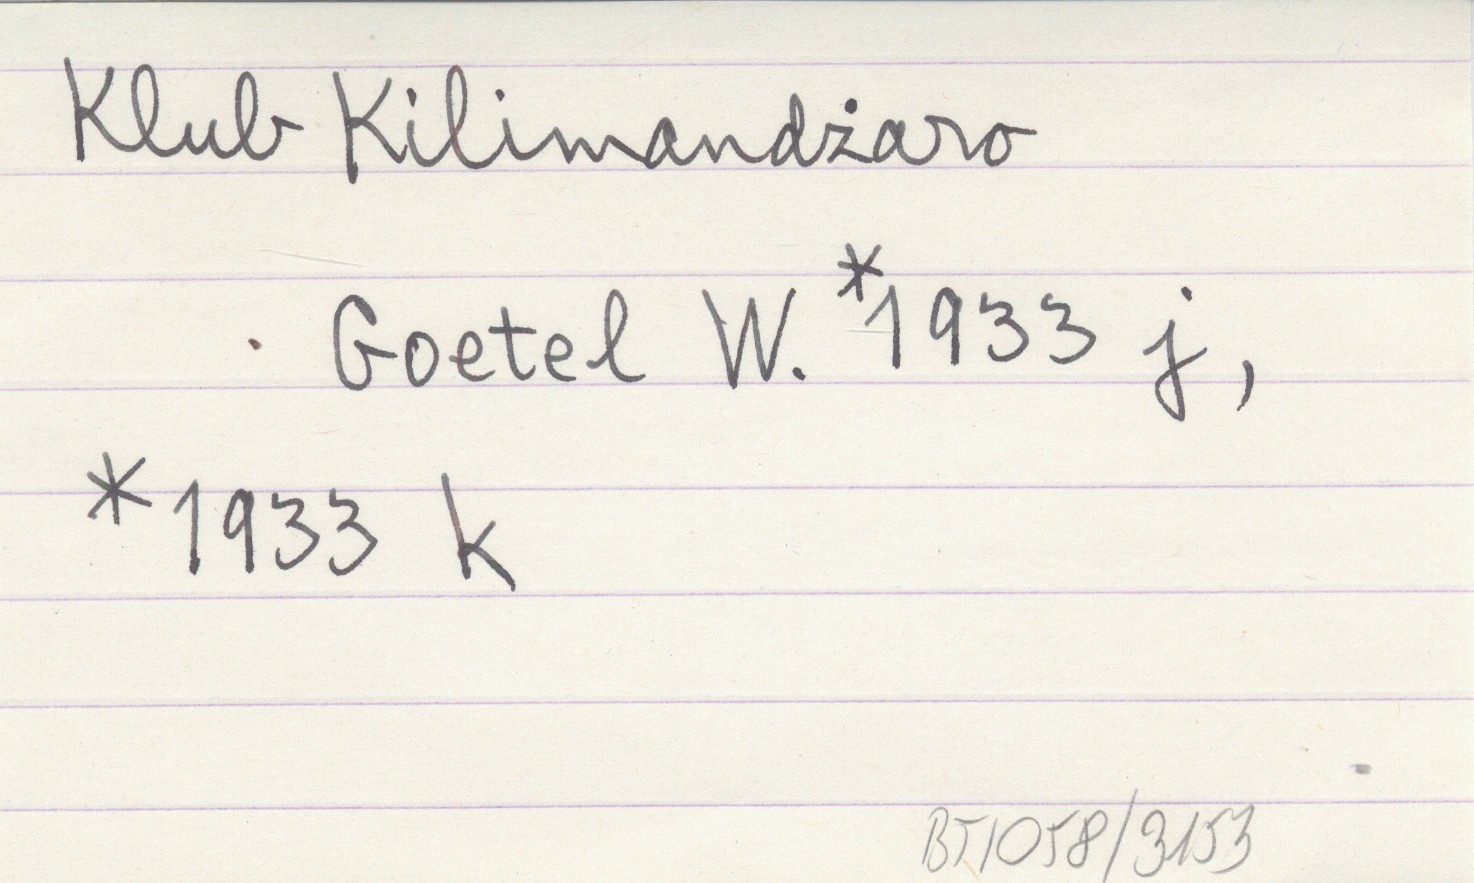 Klub Kilimandżaro
Goetel W. *1933 j,
*1933 k
BT/058/3153